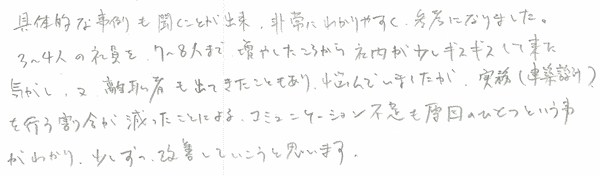 具体的な事例も聞くことが出来、非常にわかりやすく、参考になりました。
3～4人の社員を、7～8人まで増やしたころから社内が少しギスギスして来た
気がし、又、離職者も出てきたこともあり、悩んでいましたが、実務(建築設計)
を行う割合が減ったことによる、コミュニケーション不足も原因のひとつという事
がわかり、少しずつ、改善していこうと思います。